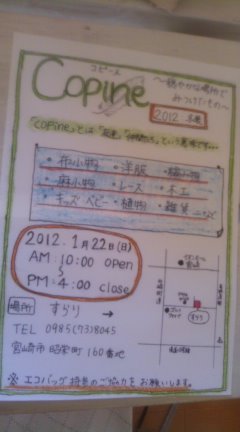 コピーヌ
Copine
〜穏やかな場所で
みつけたもの〜
2012 冬
「copine」とは「友達」「仲間たち」という意味です…
・布小物 ・洋服 ・編小物
・麻小物 ・レース ・木工
・キッズ ベビー ・植物 ・雑貨 …など
2012.1月22日(日)
AM:10:00 open
〜
PM:4:00 close
場所 すらり →
すらり
TEL 0985(73)8045
宮崎市 昭栄町 160番地
※エコバッグ持参のご協力をお願いします。